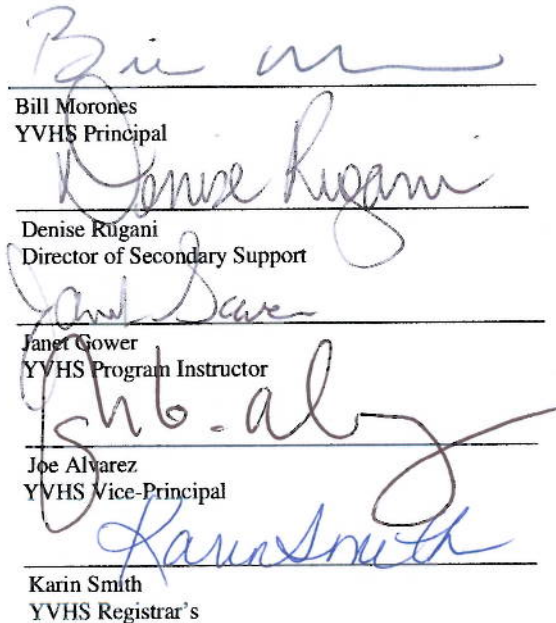 Bill Morones
YVHS Principal
Denise Rugani
Denise Rugani
Director of Secondary Support
Janet Gower
YVHS Program Instructor
Joe Alvarez
YVHS Vice-Principal
Karin Smith
Karin Smith
YVHS Registrar's